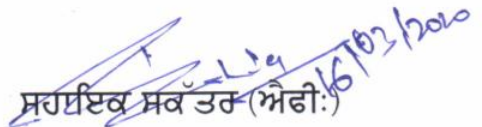 16/03/2020
ਸਹਾਇਕ ਸਕੱਤਰ (ਐਫੀ:)